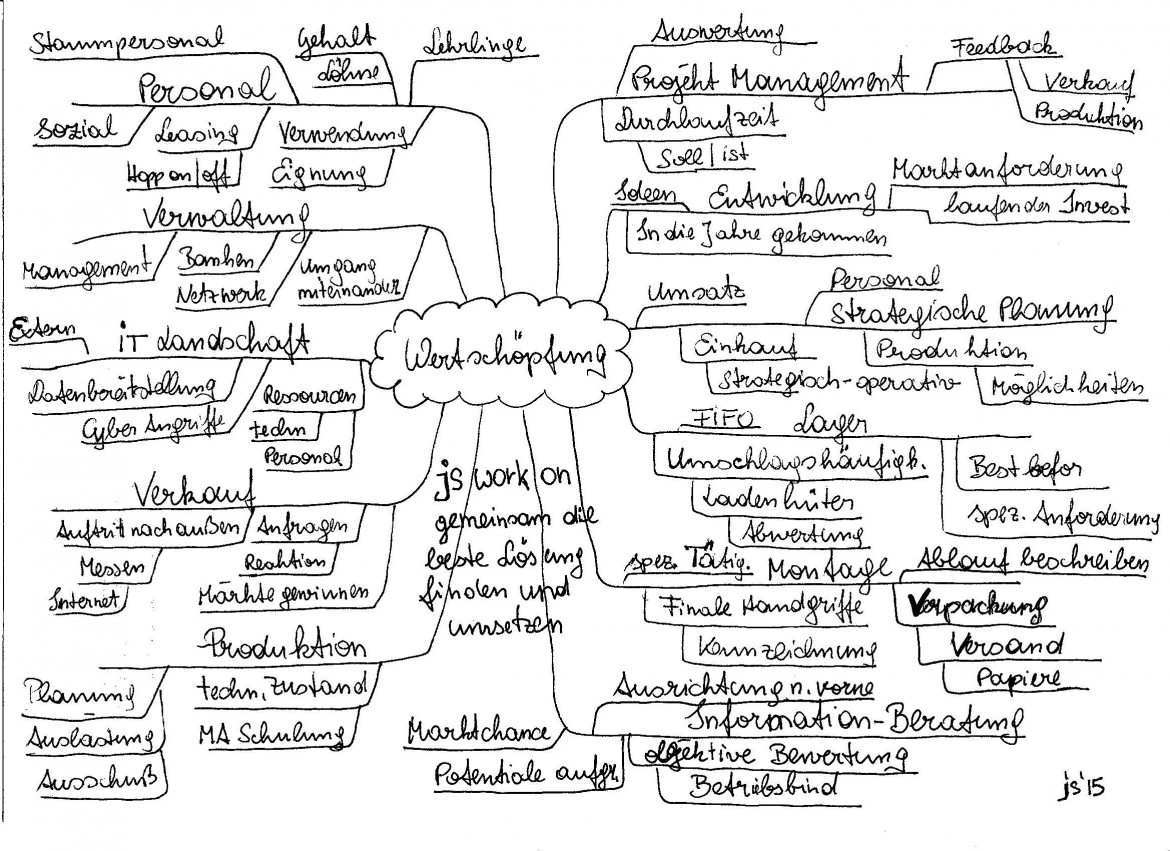 Stammpersonal
Gehalt
Löhne
Lehrlinge
Personal
Sozial
Leasing
Verwendung
Hopp on/off
Eignung
Verwaltung
Management
Banken
Netzwerk
Umgang
miteinander
Extern
iT Landschaft
Datenbereitstellung
Cyber Angriffe
Ressourcen
techn
Personal
Verkauf
Auftrit nach außen
Anfragen
Messen
Reaktion
Internet
Märkte gewinnen
Produktion
Planung
techn. Zustand
Auslastung
MA Schulung
Ausschuß
Wertschöpfung
js work on
gemeinsam die
beste Lösung
finden und
umsetzen
Auswertung
Projekt Management
Feedback
Verkauf
Produktion
Durchlaufzeit
Soll/ist
Ideen
Entwicklung
Marktanforderung
laufender Invest
In die Jahre gekommen
Umsatz
Personal
Strategische Planung
Einkauf
Produktion
Strategisch-operativ
Möglichkeiten
FIFO
Lager
Umschlagshäufigk.
Best befor
Ladenhüter
spez. Anforderung
Abwertung
spez. Tätig.
Montage
Ablauf beschreiben
Finale Handgriffe
Verpackung
Kennzeichnung
Versand
Papiere
Ausrichtung n. vorne
Marktchance
Information-Beratung
Potentiale aufgr.
objektive Bewertung
Betriebsbind
js'15